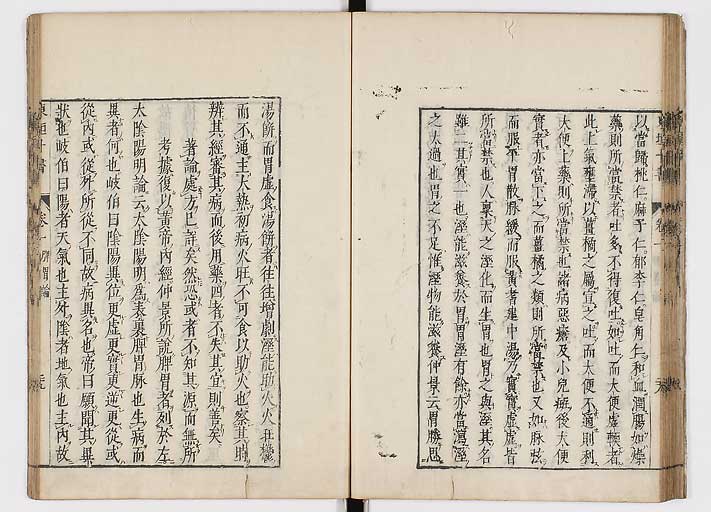 以當歸桃仁麻子仁郁李仁皂角仁和血潤腸如燥
藥則所當禁者吐多不得復吐如吐而大便虛軟者
此上氣壅滯以薑橘之屬宣之吐而大便不通則利
大便上藥則所當禁也諸病惡瘡及小兒癍後大便
實者亦當下之而薑橘之類則所當禁也又如脉弦
而服平胃散脉緩而服黃耆建中湯乃實實虛虛皆
所當禁也人稟天之溼化而生胃也胃之與溼其名
雖二其實一也溼能滋養於胃胃溼有餘亦當瀉溼
之太過也胃之不足惟溼物能滋養仲景云胃勝思
湯餠而胃虛食湯餠者往往增劇溼能助火火旺欝
而不通主大熱初病火旺不可食以助火也察其時
辨其經審其病而後用藥四者不失其宜則善矣
著論處方已詳矣然恐或者不知其源而無所
考據復以黃帝內經仲景所說脾胃者列於左
太陰陽明論云太陰陽明爲表裏脾胃脉也生病而
異者何也岐伯曰陰陽異位更虛更實更逆更從或
從內或從外所從不同故病異名也帝曰願聞其異
狀也岐伯曰陽者天氣也主外陰者地氣也主內故
東垣十書
脾胃論